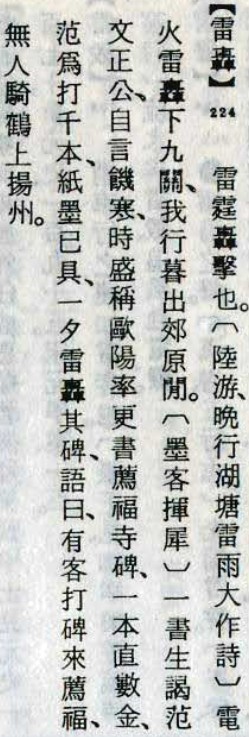 【雷轟】224 雷霆轟擊也。〔陸游、晚行湖塘雷雨大作詩〕電
火雷轟下九關、我行暮出郊原閒。〔墨客揮犀〕一書生謁范
文正公、自言饑寒、時盛稱歐陽率更書薦福寺碑、一本直數金、
范爲打千本、紙墨已具、一夕雷轟其碑、語曰、有客打碑來薦福、
無人騎鶴上揚州。